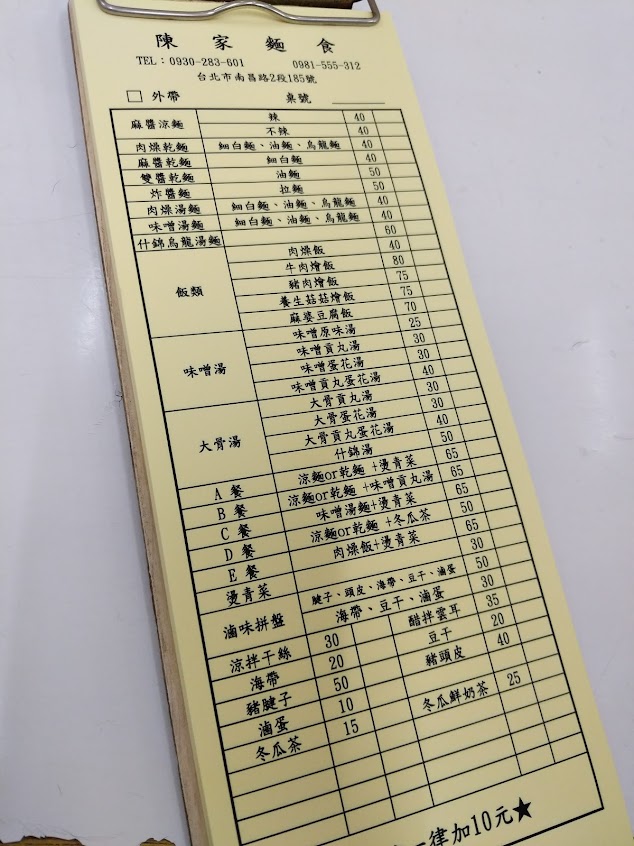 陳家麵食
TEL：0930-283-601 0981-555-312
台北市南昌路2段185號
□ 外帶 桌號
麻醬涼麵 辣 40
不辣 40
肉燥乾麵 細白麵、油麵、烏龍麵 40
麻醬乾麵 細白麵 40
雙醬乾麵 油麵 50
炸醬麵 拉麵 50
肉燥湯麵 細白麵、油麵、烏龍麵 40
味噌湯麵 細白麵、油麵、烏龍麵 40
什錦烏龍湯麵 60
飯類 肉燥飯 40
牛肉燴飯 80
豬肉燴飯 75
養生菇菇燴飯 75
麻婆豆腐飯 70
味噌湯 味噌原味湯 25
味噌貢丸湯 30
味噌蛋花湯 30
味噌貢丸蛋花湯 40
大骨湯 大骨貢丸湯 30
大骨蛋花湯 30
大骨貢丸蛋花湯 40
什錦湯 50
A 餐 涼麵or乾麵 +燙青菜 65
B 餐 涼麵or乾麵 +味噌貢丸湯 65
C 餐 味噌湯麵+燙青菜 65
D 餐 涼麵or乾麵 +冬瓜茶 50
E 餐 肉燥飯+燙青菜 65
燙青菜 30
滷味拼盤 腱子、頭皮、海帶、豆干、滷蛋 50
海帶、豆干、滷蛋 30
涼拌干絲 30 醋拌雲耳 35
海帶 20 豆干 20
豬腱子 50 豬頭皮 40
滷蛋 10
冬瓜茶 15 冬瓜鮮奶茶 25
一律加10元★